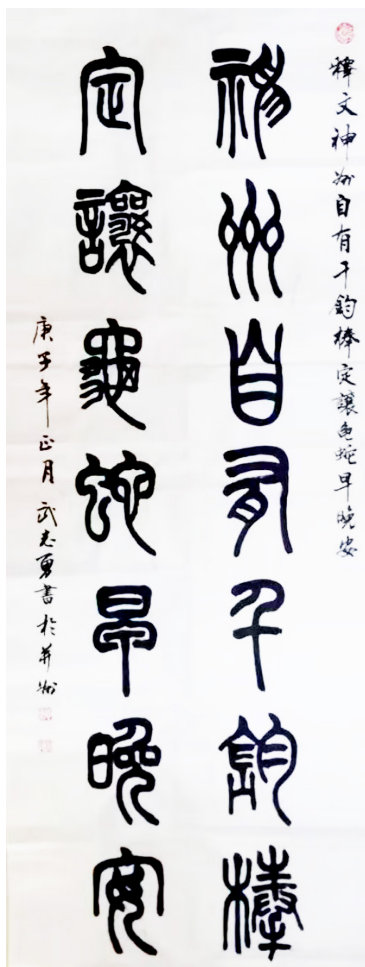 釋文神州自有千鈞棒定讓龟蛇早晚安
神州自有千鈞棒
定讓龜蛇早晚安
庚子年正月武志勇書於并州